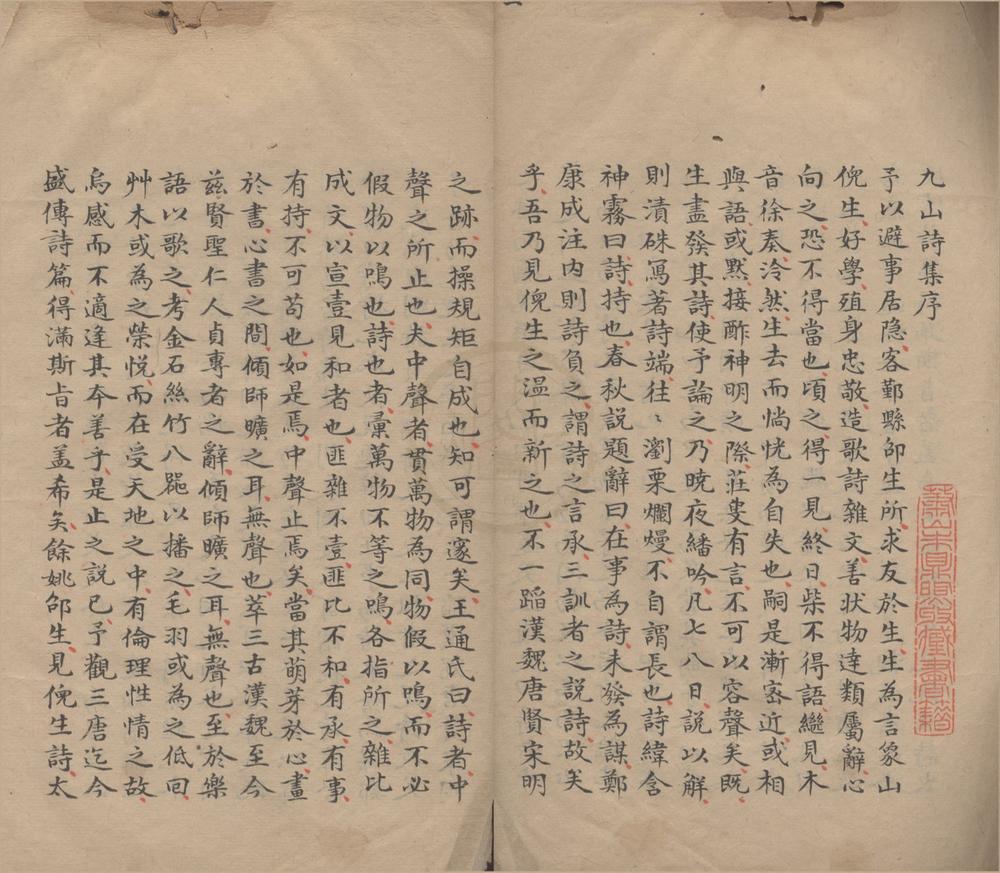 九山詩集序
予以避事居隐客鄞縣邵生所求友於生生為言象山
倪生好學殖身忠敬造歌詩雜文善狀物達類屬辭心
向之恐不得當也頃之得一見終日柴不得語繼見木
音徐奏泠然生去而惝恍為自失也嗣是漸密近或相
與語或黙接酢神明之際莊叟有言不可以容聲矣既
生盡發其詩使予論之乃曉夜繙吟凡七八日說以解
則漬硃寫著詩端往〻瀏栗爛熳不自謂長也詩緯含
神霧曰詩持也春秋説題辭曰在事為詩未發為謀鄭
康成注内則詩負之謂詩之言承三訓者之説詩故矣
乎吾乃見倪生之温而新之也不一蹈漢魏唐賢宋明
之跡而操規矩自成也知可謂邃矣王通氏曰詩者中
聲之所止也夫中聲者貫萬物為同物假以鳴而不必
假物以鳴也詩也者彙萬物不等之鳴各指所之雜比
成文以宣壹見和者也匪雜不壹匪比不和有承有事
有持不可苟也如是焉中聲止焉矣當其萌芽於心畫
於書心書之間傾師曠之耳無聲也萃三古漢魏至今
茲賢聖仁人貞專者之辭傾師曠之耳無聲也至於樂
語以歌之考金石絲竹八噐以播之毛羽或為之低囘
艸木或為之榮悦而在受天地之中有倫理性情之故
烏感而不適逢其夲善乎是止之説已予觀三唐迄今
盛傳詩篇得滿斯旨者盖希矣餘姚邵生見倪生詩太
蕭山朱鼎煦收藏書籍